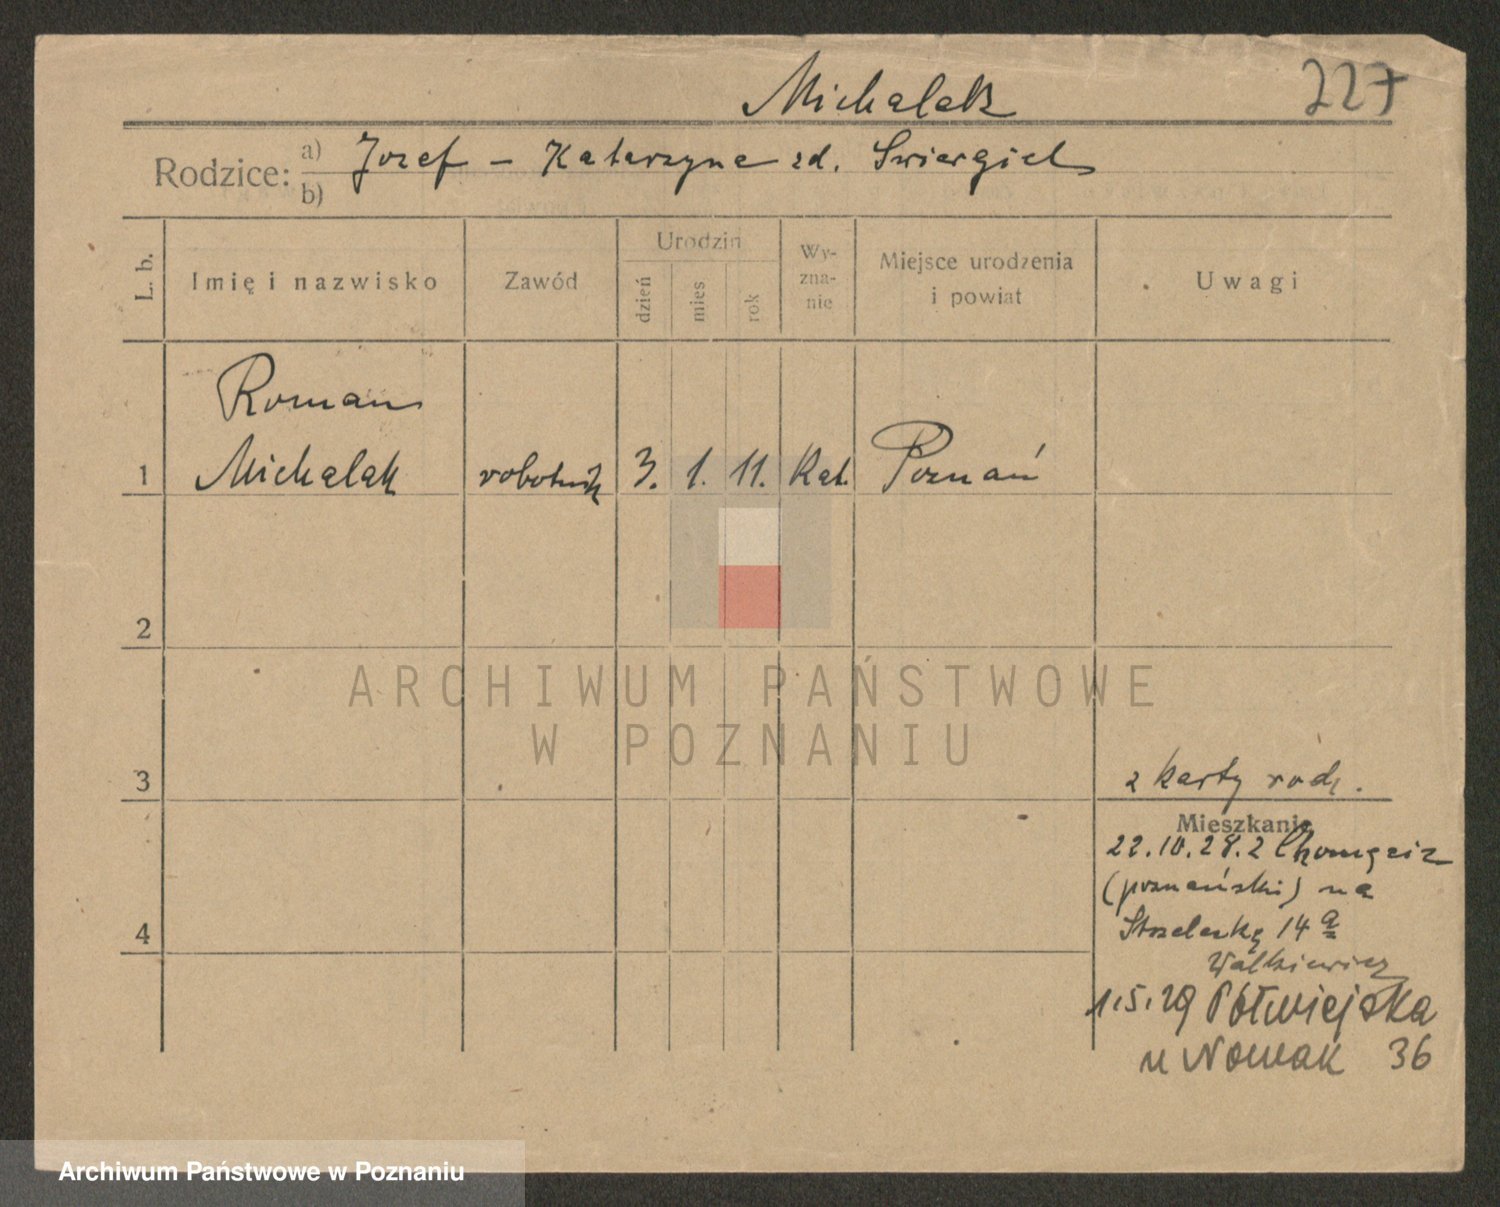 Michalak
227
Rodzice: a) Jozef – Katarzyna zd. Swiergiel
b)
L. b.
Imię i nazwisko
Zawód
Urodzin
dzień
mies
rok
Wy-
zna-
nie
Miejsce urodzenia
i powiat
Uwagi
Roman
1 Michalak robotnik 3. 1. 11. Kat. Poznań
2
ARCHIWUM PAŃSTWOWE
W POZNANIU
3
z karty rodz.
Mieszkanie
22.10.28. z Chomęcic
(poznański) na
4 Strzelecką 14 a
Walkiewicz
1.5.29 Półwiejska
u Nowak 36
Archiwum Państwowe w Poznaniu